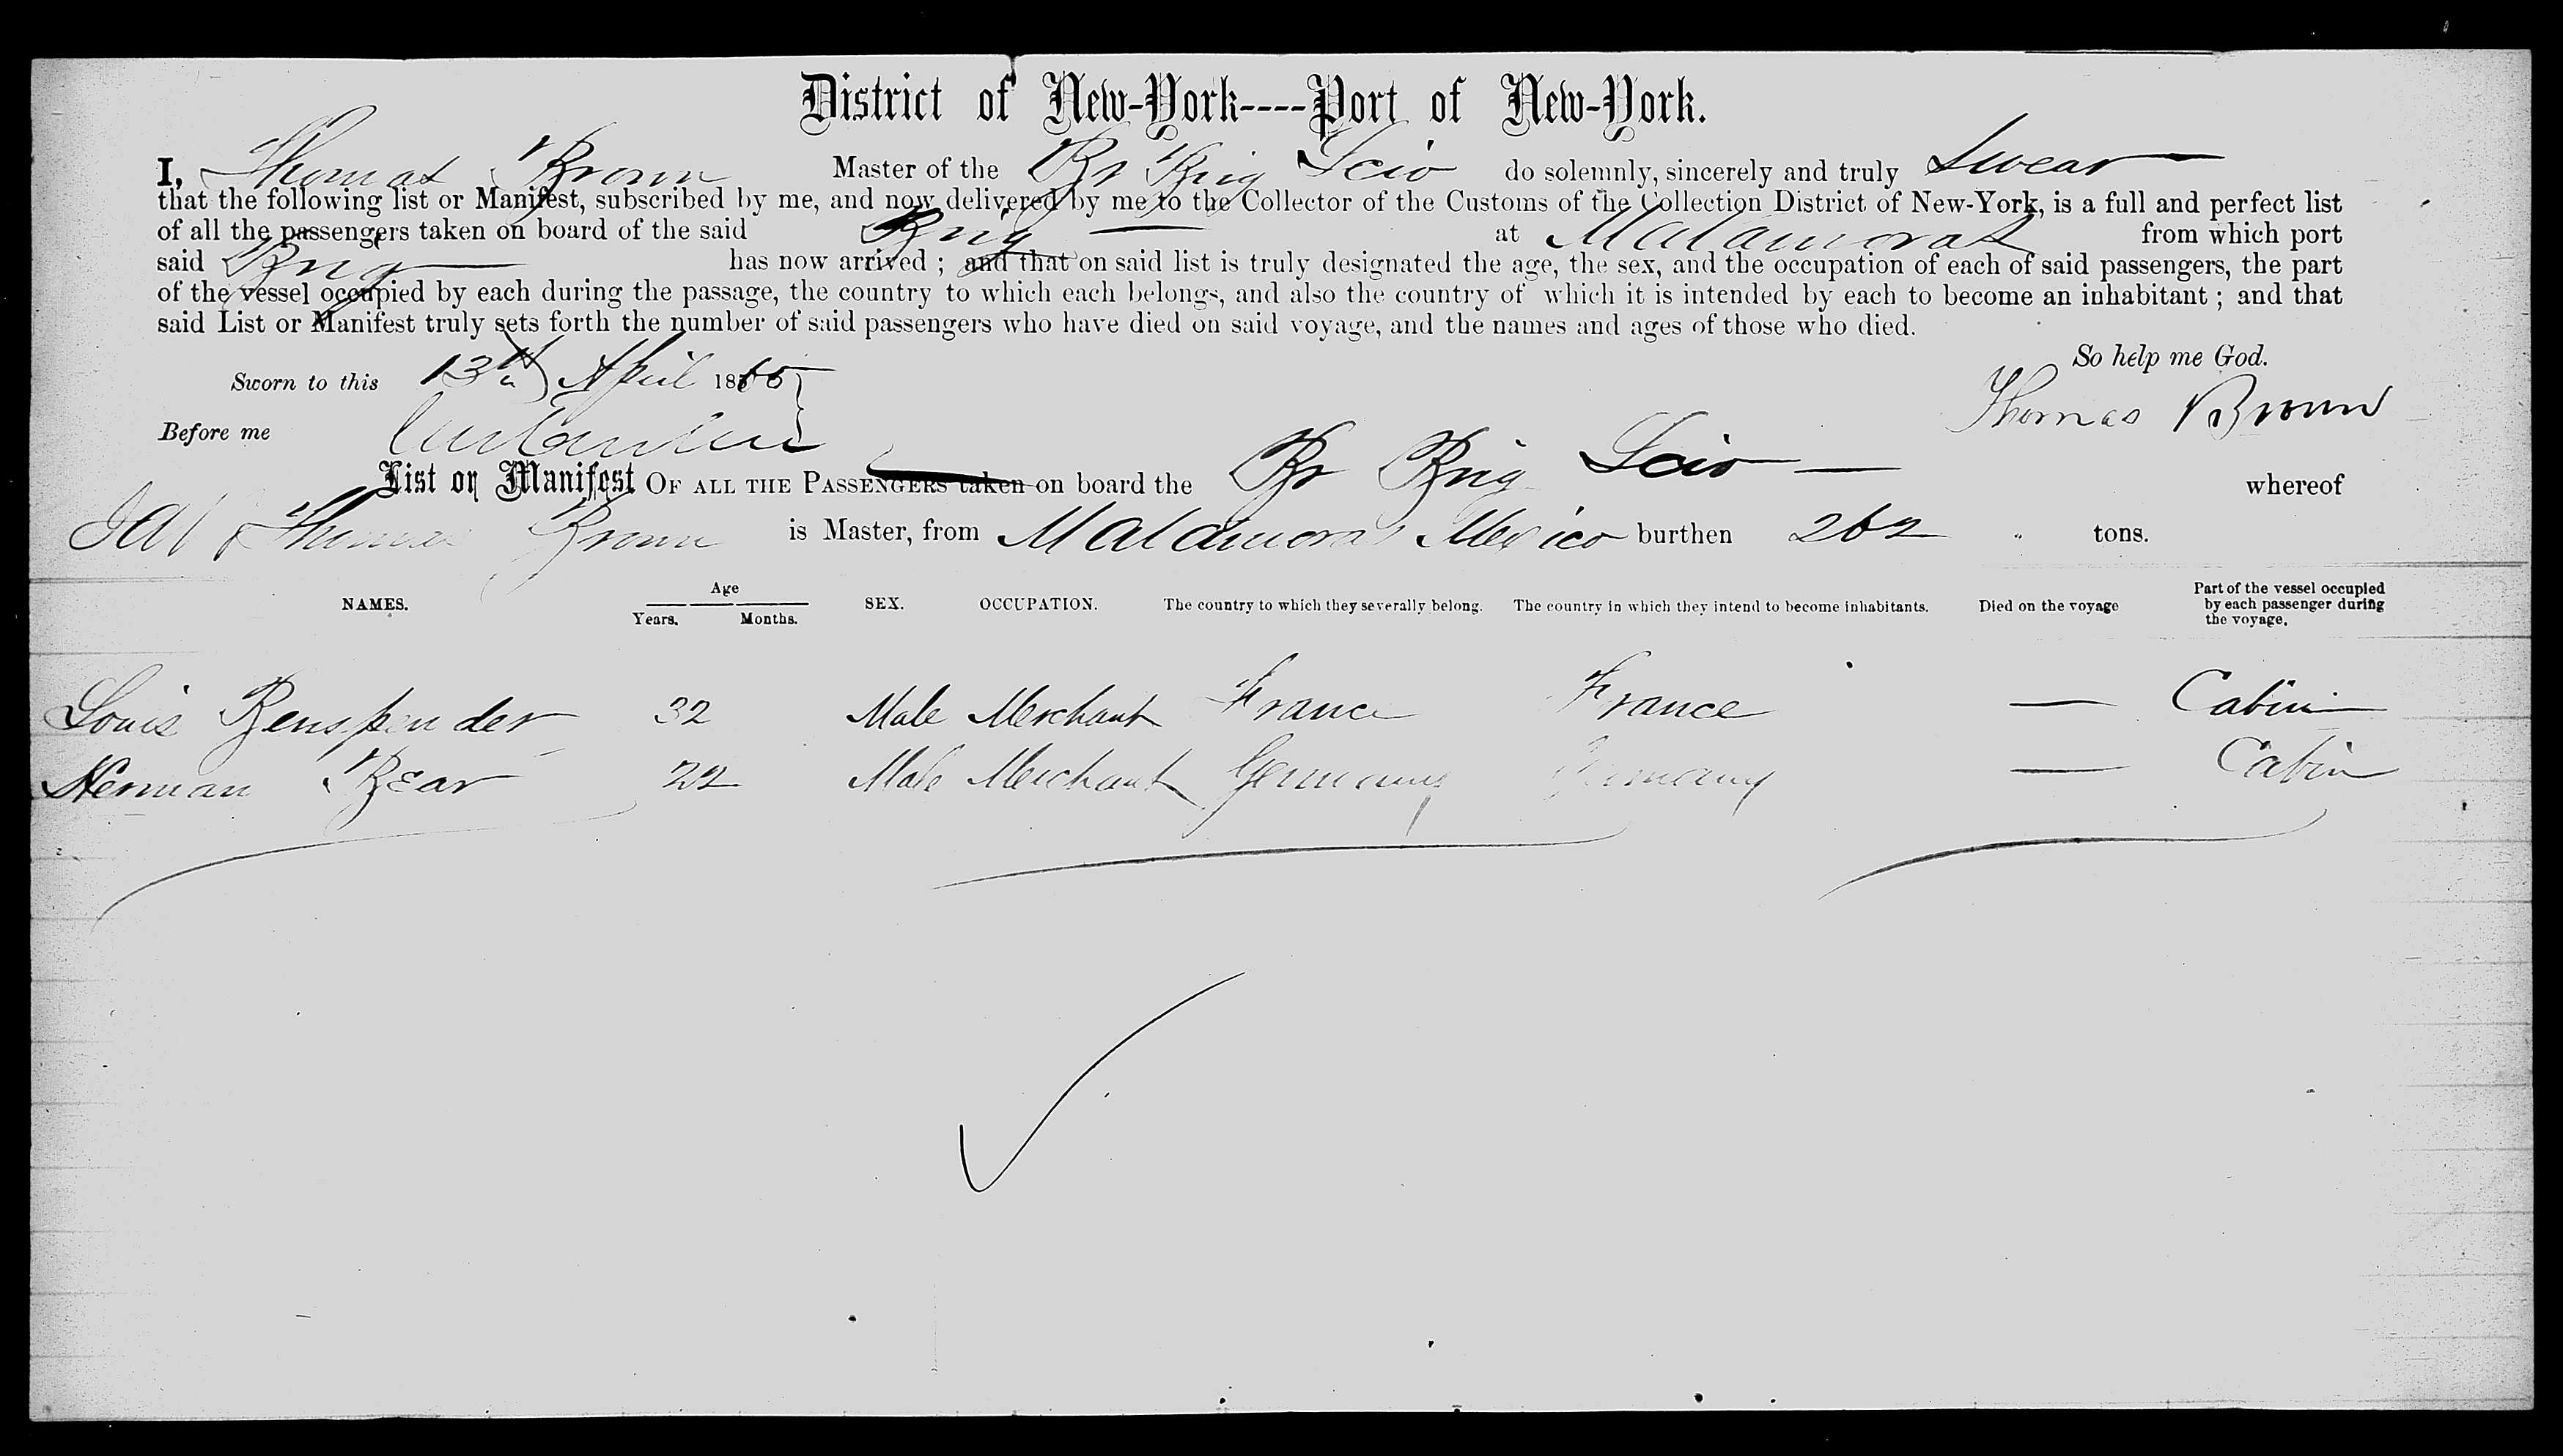 District of New-York----Port of New-York.
I, Thomas Brown Master of the Br Brig Scio do solemnly, sincerely and truly Swear
that the following list or Manifest, subscribed by me, and now delivered by me to the Collector of the Customs of the Collection District of New-York, is a full and perfect list
of all the passengers taken on board of the said Brig at Matamoras from which port
said Brig has now arrived ; and that on said list is truly designated the age, the sex, and the occupation of each of said passengers, the part
of the vessel occupied by each during the passage, the country to which each belongs, and also the country of which it is intended by each to become an inhabitant ; and that
said List or Manifest truly sets forth the number of said passengers who have died on said voyage, and the names and ages of those who died.
So help me God.
Sworn to this 13th April 1865
Thomas Brown
Before me
List or Manifest OF ALL THE PASSENGERS taken on board the Br Brig Scio whereof
Thomas Brown is Master, from Matamoras Mexico burthen 262 tons.
NAMES. Age Years. Months. SEX. OCCUPATION. The country to which they severally belong. The country in which they intend to become inhabitants. Died on the voyage Part of the vessel occupied by each passenger during the voyage.
Louis Benspender 32 Male Merchant France France — Cabin
Herman Bear 22 Male Merchant Germany Germany — Cabin